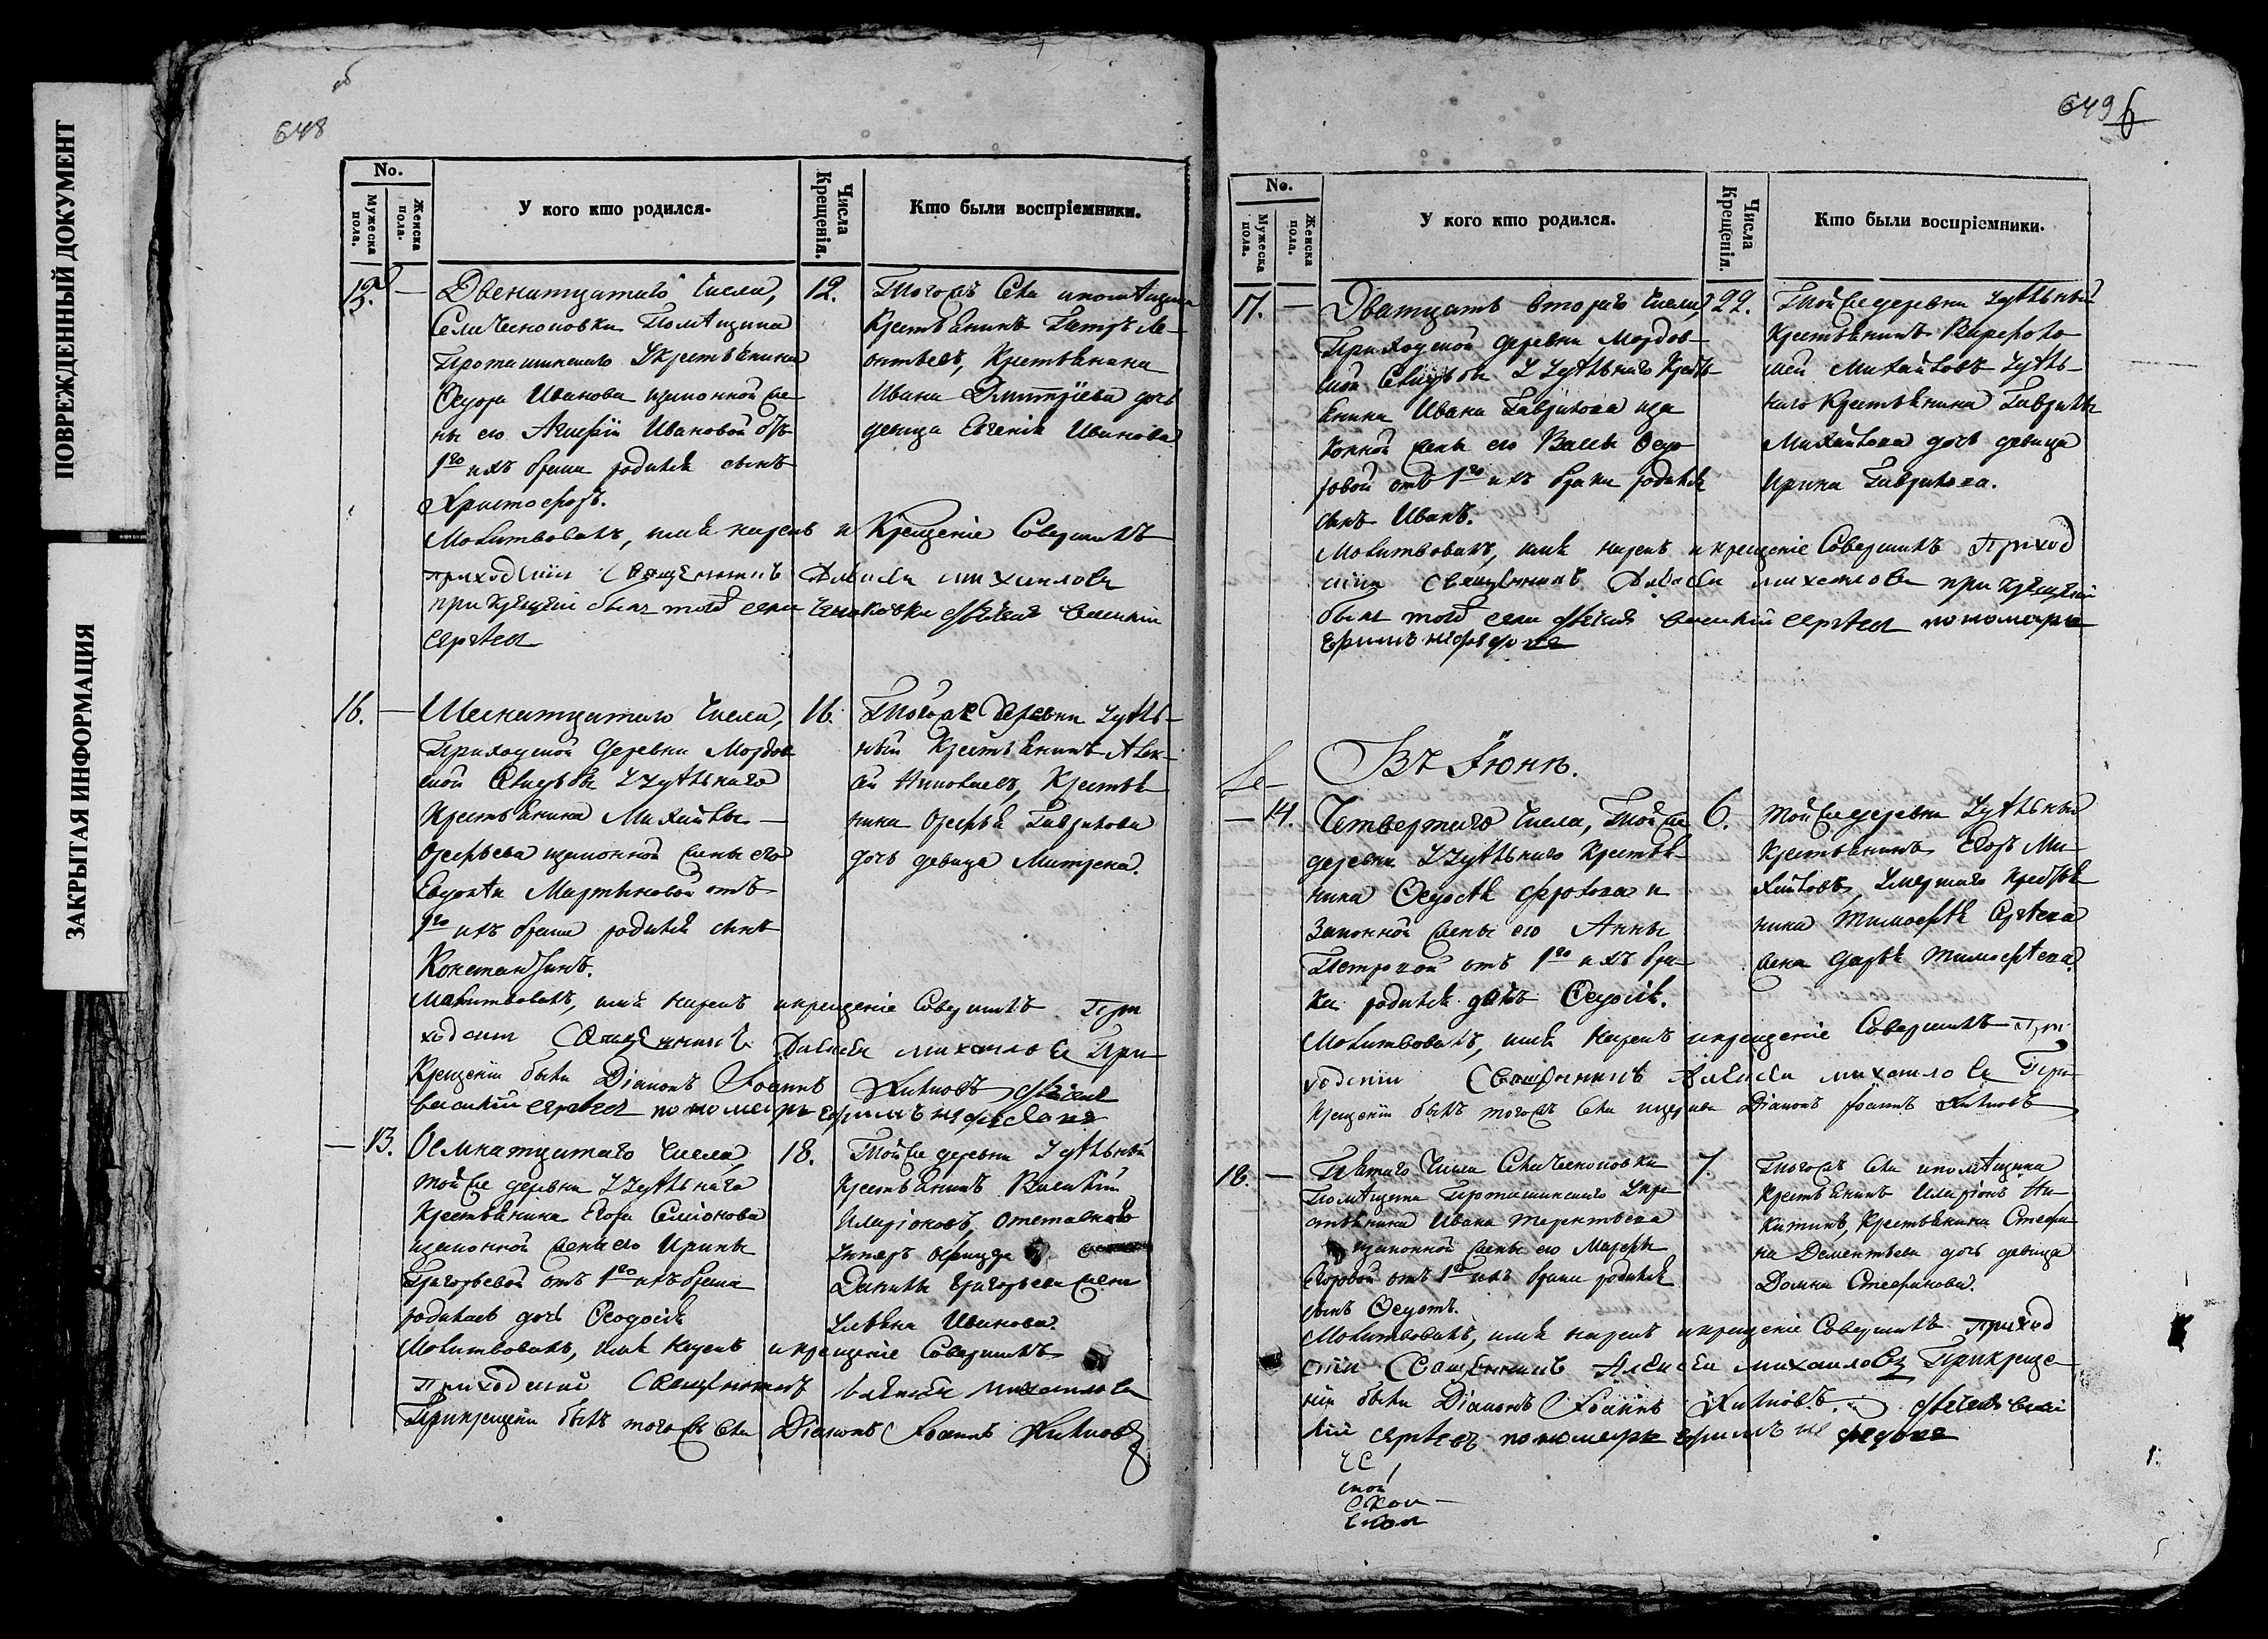 ПОВРЕЖДЕННЫЙ ДОКУМЕНТ
ЗАКРЫТАЯ ИНФОРМАЦИЯ
об
648
No.
Мужеска пола.
Женска пола.
У кого кто родился.
Числа Крещенія.
Кто были воспріемники.
15. —
Двенатцатаго числа,
Села Чесноковки Помѣщика
Проташинскаго Укрестьянина
Ѳедора Иванова изаконной же
ны его Агафіи Ивановой отъ
1го ихъ брака родился сынъ
Христофоръ.
12.
Тогожъ Села ипомѣщика
Крестьянинъ Петръ Ле-
онтьевъ, Крестьянина
Ивана Дмитріева дочь
девица Евгенія Иванова
Молитвовалъ, имя нарекъ и Крещеніе Совершилъ
приходскій Священникъ Алексѣй Михаиловъ
при крещеніи былъ тогожъ села Чесноковки дьячекъ Василій
Сергѣевъ
16. —
Шеснатцатаго числа,
Приходской деревни Мордов
ской Селитьбы Уудѣльнаго
Крестьянина Михайлы
изаконной жены его
Евдокіи Мартыновой отъ
1го ихъ брака родился сынъ
Константинъ.
16.
Тогоже деревни Удѣль-
ный Крестьянинъ Алек-
сѣй Николаевъ, Крестья
нина Гаврилова
дочь девица Матрена.
Молитвовалъ, имя нарекъ икрещеніе Совершилъ При
ходскій Священникъ Алексѣй Михаиловъ При
Крещеніи были Діаконъ Іоаннъ дьячекъ
Василій Сергѣевъ пономарь Ефимъ Нефедовъ
— 13.
Осмнатцатаго числа,
тойже деревни Уудѣльнаго
Крестьянина Егора Семіонова
изаконной жены его Ирины
Григорьевой отъ 1го ихъ брака
родилась дочь Ѳеодосія
18.
Тойже деревни Удѣльный
Крестьянинъ Василій
Иларіоновъ, отставнаго
Унтеръ офицера
Данилы Григорьева жена
Ульяна Иванова.
Молитвовалъ, имя нарекъ икрещеніе Совершилъ
Приходскій Священникъ Алексѣй Михаиловъ
Прикрещеніи былъ тогожъ села Діаконъ Іоаннъ
649 6
No.
Мужеска пола.
Женска пола.
У кого кто родился.
Числа Крещенія.
Кто были воспріемники.
17. —
Дватцать втораго числа,
Приходской деревни Мордов-
ской Селитьбы Уудѣльнаго Крест-
янина Ивана Гаврилова иза
конной жены его Ѳедо
ровой отъ 1го ихъ брака родился
сынъ Иванъ.
22.
Тойже деревни Удѣльный
Крестьянинъ Варфоло
мей Михайловъ Удѣль-
наго Крестьянина Гаврилы
Михайлова дочь девица
Ирина Гаврилова.
Молитвовалъ, имя нарекъ икрещеніе Совершилъ Приход
скій Священникъ Алексѣй Михаиловъ при крещеніи
былъ тогожъ села дьячекъ Василій Сергѣевъ пономарь
Ефимъ Нефедовъ
Въ Іюнѣ.
— 14.
Четвертаго числа, Тойже
деревни Уудѣльнаго Крестья-
нина Фролова и
Законной жены его Анны
Петровой отъ 1го ихъ бра-
ка родилась дочь
6.
Тойже деревни Удѣльный
Крестьянинъ Егоръ Ми-
хайловъ, Умершаго Крестья
нина Тимофея Сергѣева
жена Дарья Тимофеева.
Молитвовалъ, имя нарекъ икрещеніе Совершилъ При
ходскій Священникъ Алексѣй Михаиловъ При
Крещеніи былъ тогожъ села Діаконъ Іоаннъ
18. —
Пятаго числа Села Чесноковки
Помѣщика Проташинскаго Укре
стьянина Ивана Терентьева
изаконной жены его Марфы
Егоровой отъ 1го ихъ брака родился
сынъ Ѳедотъ.
7.
Тогожъ села ипомѣщика
Крестьянинъ Иларіонъ Ни
китинъ, Крестьянина Стефа
на Дементьева дочь девица
Домна Стефанова.
Молитвовалъ, имя нарекъ икрещеніе Совершилъ Приход
скій Священникъ Алексѣй Михаиловъ Прикреще
ніи были Діаконъ Іоаннъ дьячекъ Васи
лій Сергѣевъ пономарь Ефимъ Нефедовъ